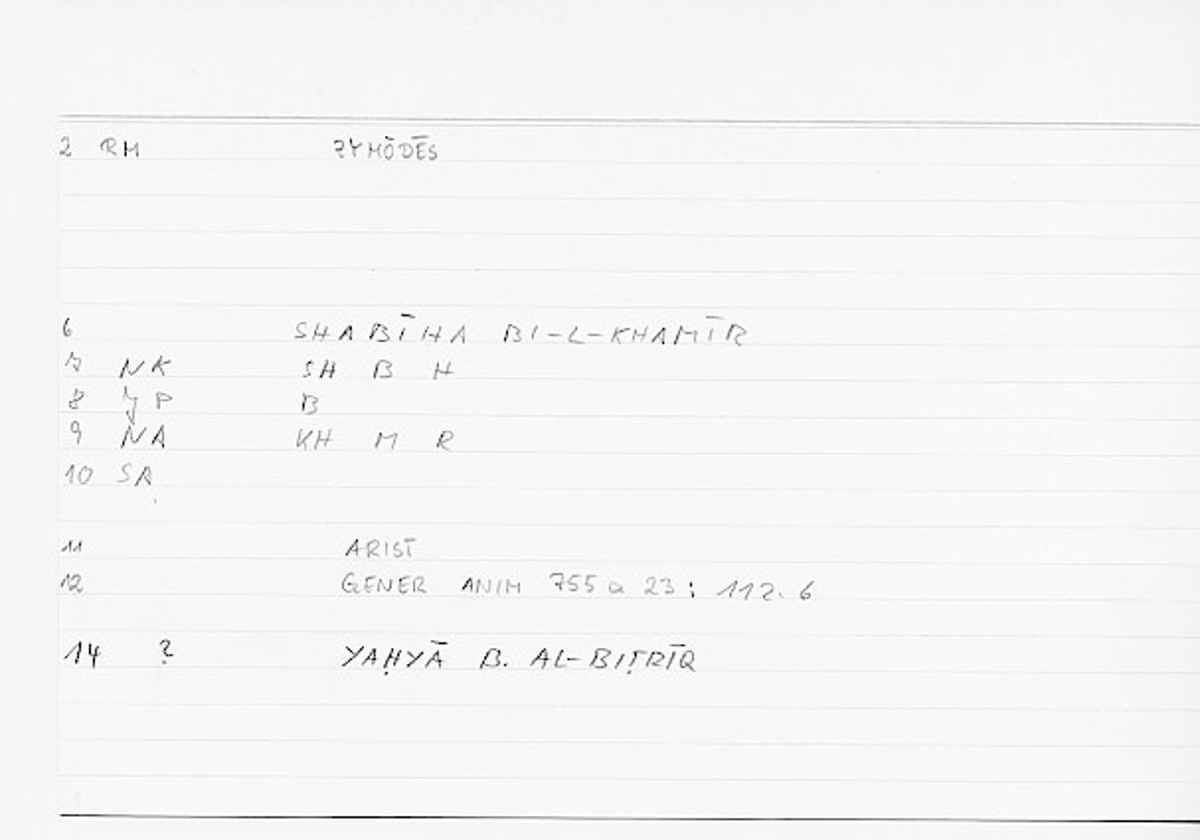 2 RM ZYMŌDĒS
6 SHABĪHA BI-L-KHAMĪR
7 NK SH B H
8 JP B
9 NA KH M R
10 SA
11 ARIST
12 GENER ANIM 755a 23: 112.6
14 ? YAḤYĀ B. AL-BIṬRĪQ